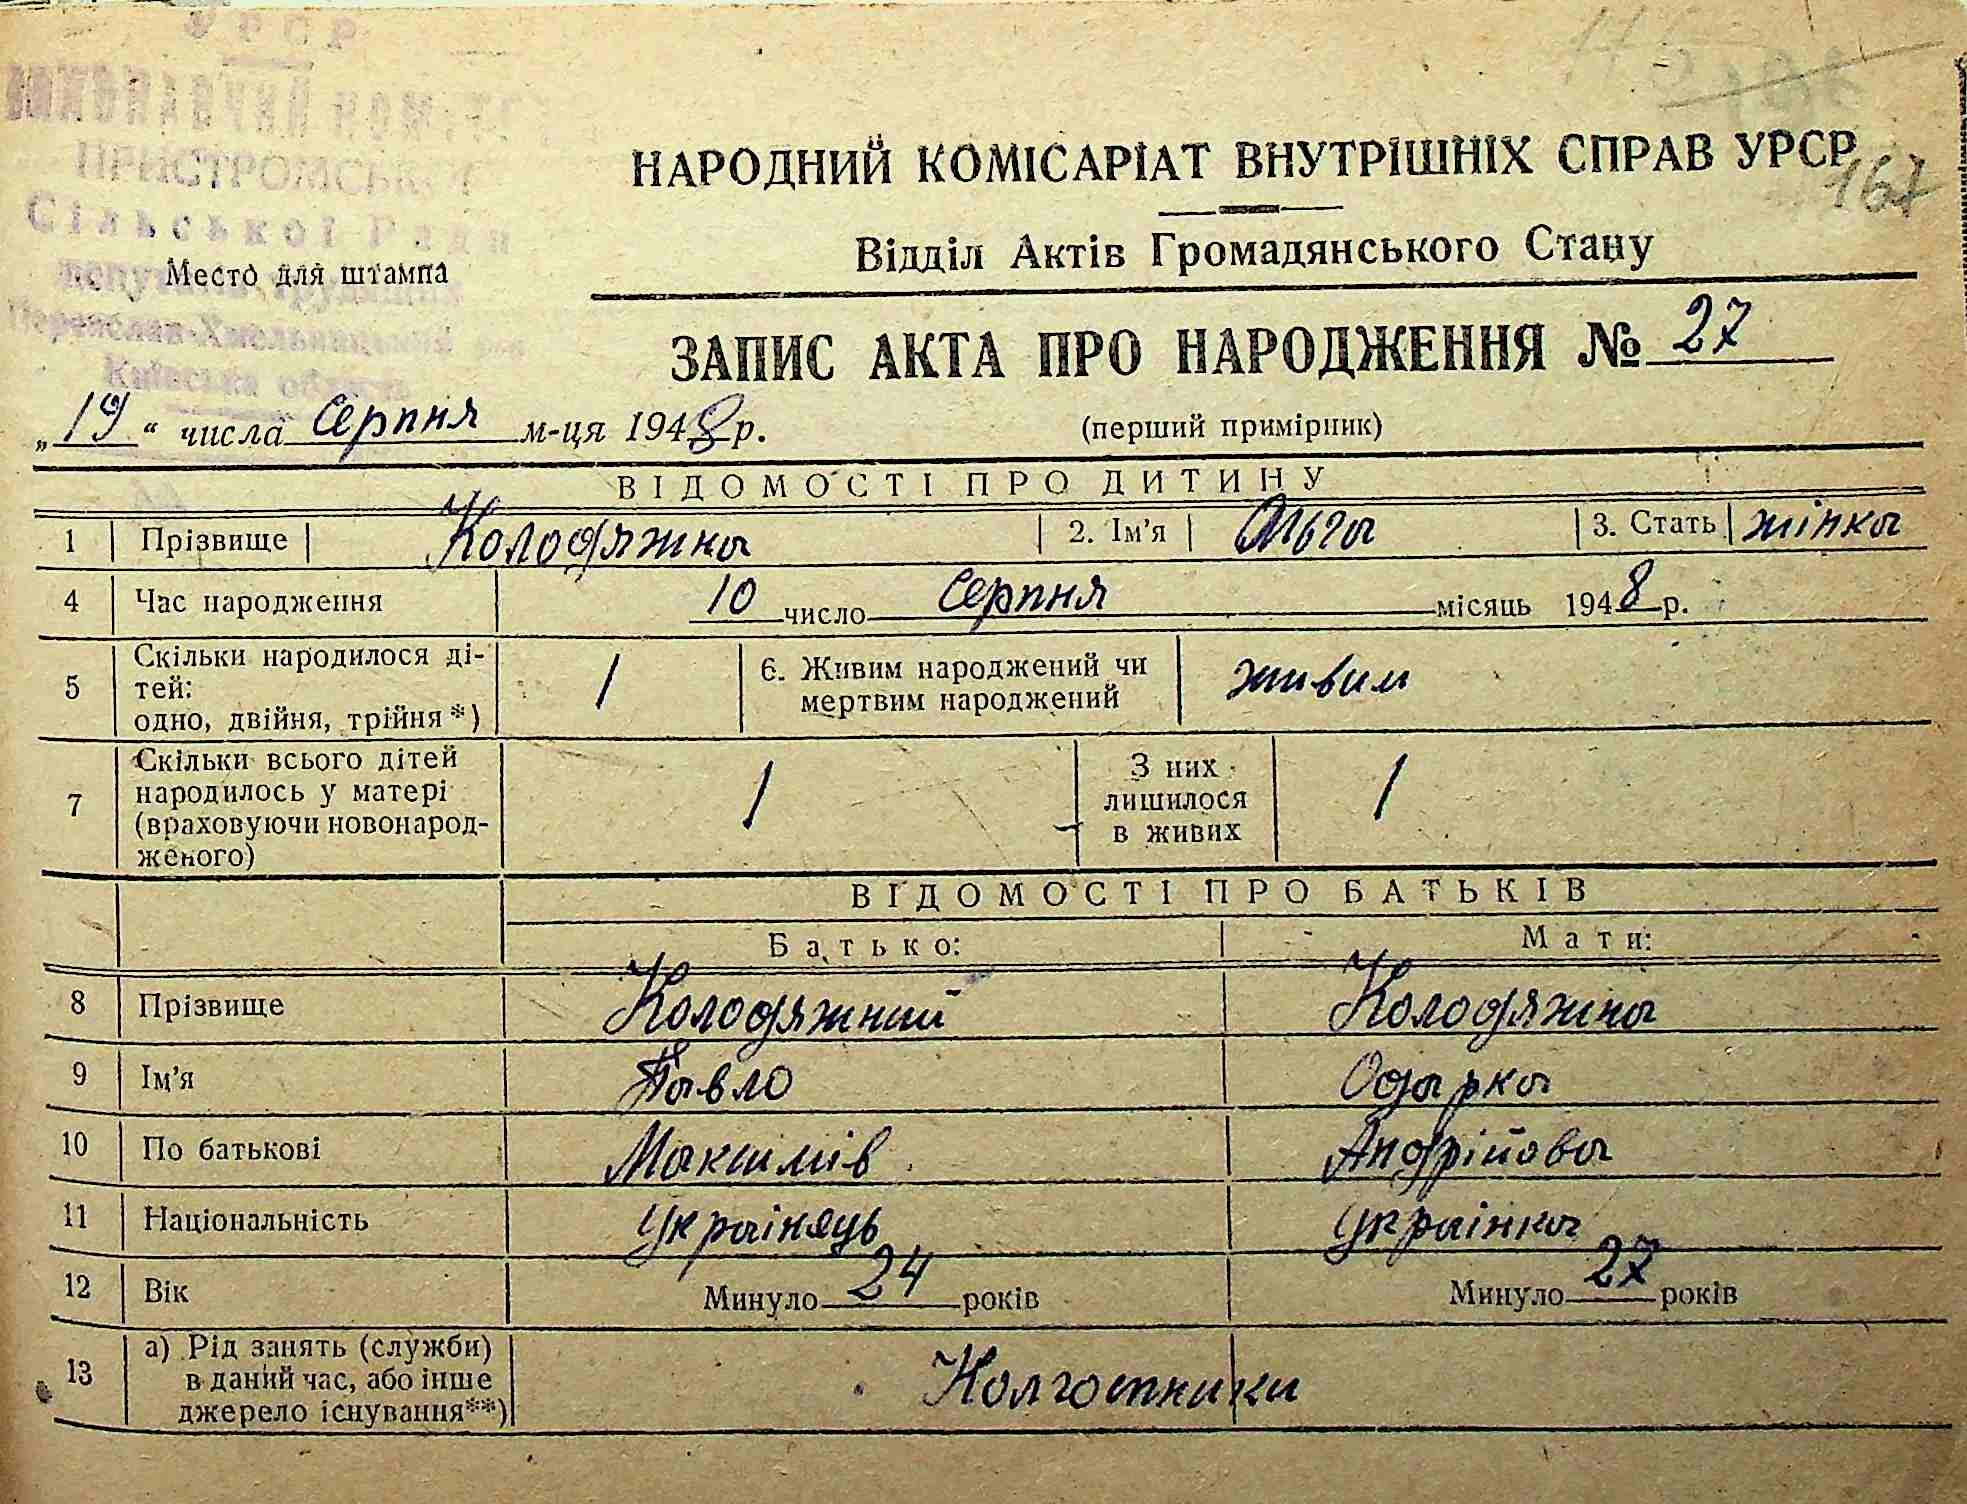 УРСР
ВИКОНАВЧИЙ КОМІТЕТ
ПРИСТРОМСЬКОЇ
Сільської Ради
депутатів трудящих
Переяслав-Хмельницький р-н
Київська область
Место для штампа
167
НАРОДНИЙ КОМІСАРІАТ ВНУТРІШНІХ СПРАВ УРСР
Відділ Актів Громадянського Стану
ЗАПИС АКТА ПРО НАРОДЖЕННЯ № 27
„19“ числа серпня м-ця 1948 р. (перший примірник)
ВІДОМОСТІ ПРО ДИТИНУ
1 Прізвище Колодяжна 2. Ім'я Ольга 3. Стать жінка
4 Час народження 10 число серпня місяць 1948 р.
5 Скільки народилося ді-
тей:
одно, двійня, трійня*) 1 6. Живим народжений чи
мертвим народжений живим
7 Скільки всього дітей
народилось у матері
(враховуючи новонарод-
женого) 1 З них
лишилося
в живих 1
ВІДОМОСТІ ПРО БАТЬКІВ
Батько: Мати:
8 Прізвище Колодяжний Колодяжна
9 Ім'я Павло Одарка
10 По батькові Максимів Андрійова
11 Національність українець українка
12 Вік Минуло 24 років Минуло 27 років
13 а) Рід занять (служби)
в даний час, або інше
джерело існування**) Колгоспники